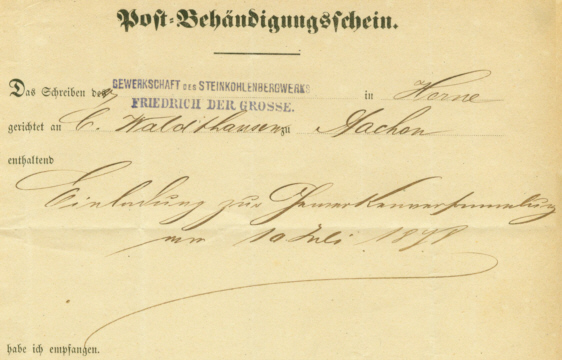 Post-Behändigungsschein.
Das Schreiben des GEWERKSCHAFT DES STEINKOHLENBERGWERKS FRIEDRICH DER GROSSE. in Herne
gerichtet an C. Waldthausen zu Aachen
enthaltend
Einladung zur Gewerkenversammlung
10 Juli 1878
habe ich empfangen.